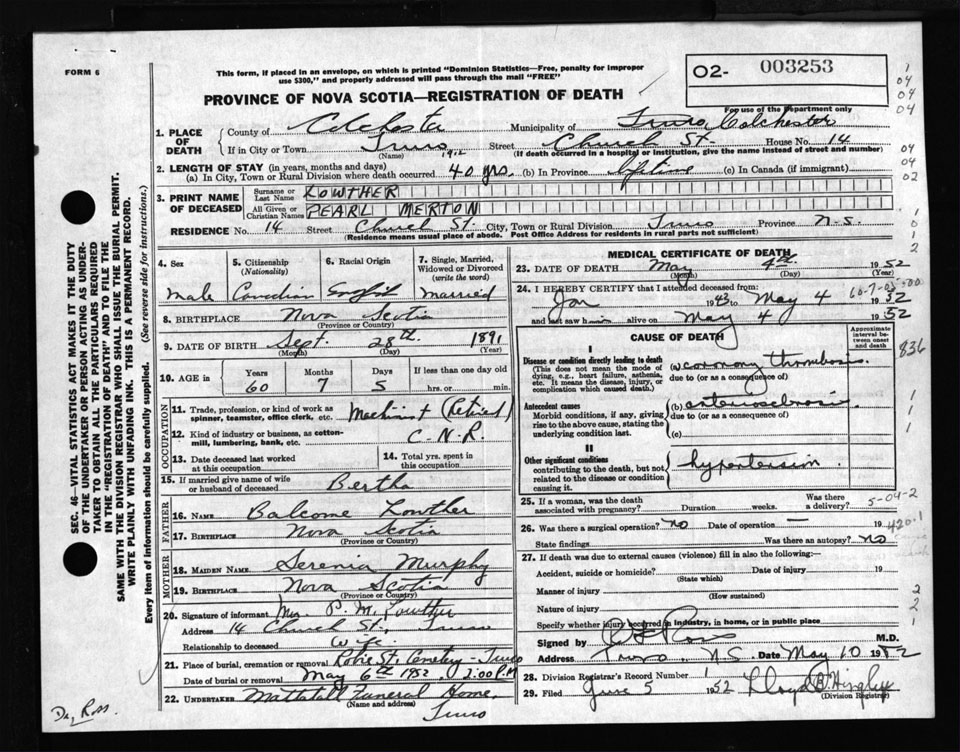 FORM 6
This form, if placed in an envelope, on which is printed "Dominion Statistics—Free, penalty for improper
use $300," and properly addressed will pass through the mail "FREE"
O2- 003253
For use of the Department only
PROVINCE OF NOVA SCOTIA—REGISTRATION OF DEATH
1. PLACE OF DEATH { County of Colchester Municipality of Truro, Colchester
If in City or Town Truro (Name) 1912 Street Church St House No. 14
(If death occurred in a hospital or institution, give the name instead of street and number)
2. LENGTH OF STAY (in years, months and days)
(a) In City, Town or Rural Division where death occurred 40 yrs. (b) In Province Lifetime (c) In Canada (if immigrant)
3. PRINT NAME OF DECEASED { Surname or Last Name LOWTHER
All Given or Christian Names PEARL MERTON
RESIDENCE No. 14 Street Church St. City, Town or Rural Division Truro Province N.S.
(Residence means usual place of abode. Post Office Address for residents in rural parts not sufficient)
4. Sex 5. Citizenship (Nationality) 6. Racial Origin 7. Single, Married, Widowed or Divorced (write the word)
male Canadian English married
8. BIRTHPLACE Nova Scotia
(Province or Country)
9. DATE OF BIRTH Sept. 28th 1891
(Month) (Day) (Year)
10. AGE Years Months Days If less than one day old
60 7 5 hrs. or min.
OCCUPATION
11. Trade, profession, or kind of work as spinner, teamster, office clerk, etc. Machinist (Retired)
12. Kind of industry or business, as cotton-mill, lumbering, bank, etc. C.N.R.
13. Date deceased last worked at this occupation
14. Total yrs. spent in this occupation
15. If married give name of wife or husband of deceased Bertha
FATHER
16. NAME Balcome Lowther
17. BIRTHPLACE Nova Scotia
(Province or Country)
MOTHER
18. MAIDEN NAME Serenia Murphy
19. BIRTHPLACE Nova Scotia
(Province or Country)
20. Signature of informant Mrs. P. M. Lowther
Address 14 Church St., Truro
Relationship to deceased Wife
21. Place of burial, cremation or removal Robie St. Cemetery - Truro
Date of burial or removal May 6th 1952, 2:00 P.M
22. UNDERTAKER Mattatall Funeral Home,
(Name and address)
Truro
MEDICAL CERTIFICATE OF DEATH
23. DATE OF DEATH May 4th 1952
(Month) (Day) (Year)
24. I HEREBY CERTIFY that I attended deceased from:
Jan 1943 to May 4 1952
and last saw him alive on May 4 1952
CAUSE OF DEATH
Approximate interval between onset and death
I
Disease or condition directly leading to death
(This does not mean the mode of dying, e.g., heart failure, asthenia, etc. It means the disease, injury, or complication which caused death.)
(a) coronary thrombosis.
due to (or as a consequence of)
Antecedent causes
Morbid conditions, if any, giving rise to the above cause, stating the underlying condition last.
(b) arteriosclerosis.
due to (or as a consequence of)
(c)
II
Other significant conditions
contributing to the death, but not related to the disease or condition causing it.
hypertension.
25. If a woman, was the death associated with pregnancy? Duration weeks. Was there a delivery?
26. Was there a surgical operation? no Date of operation — 19
State findings Was there an autopsy? no
27. If death was due to external causes (violence) fill in also the following:—
Accident, suicide or homicide? Date of injury 19
(State which)
Manner of injury
(How sustained)
Nature of injury
Specify whether injury occurred in industry, in home, or in public place
Signed by Ross M.D.
Address Truro, N.S. Date May 10 1952
28. Division Registrar's Record Number
29. Filed June 5 1952 Lloyd
(Division Registrar)
SEC. 46—VITAL STATISTICS ACT MAKES IT THE DUTY
OF THE UNDERTAKER OR PERSON ACTING AS UNDERTAKER
TO OBTAIN ALL THE PARTICULARS REQUIRED
IN THE "REGISTRATION OF DEATH" AND TO FILE THE
SAME WITH THE DIVISION REGISTRAR WHO SHALL ISSUE THE BURIAL PERMIT.
WRITE PLAINLY WITH UNFADING INK. THIS IS A PERMANENT RECORD.
Every item of Information should be carefully supplied. (See reverse side for instructions.)
836
5-04-2
420.1
Ross.